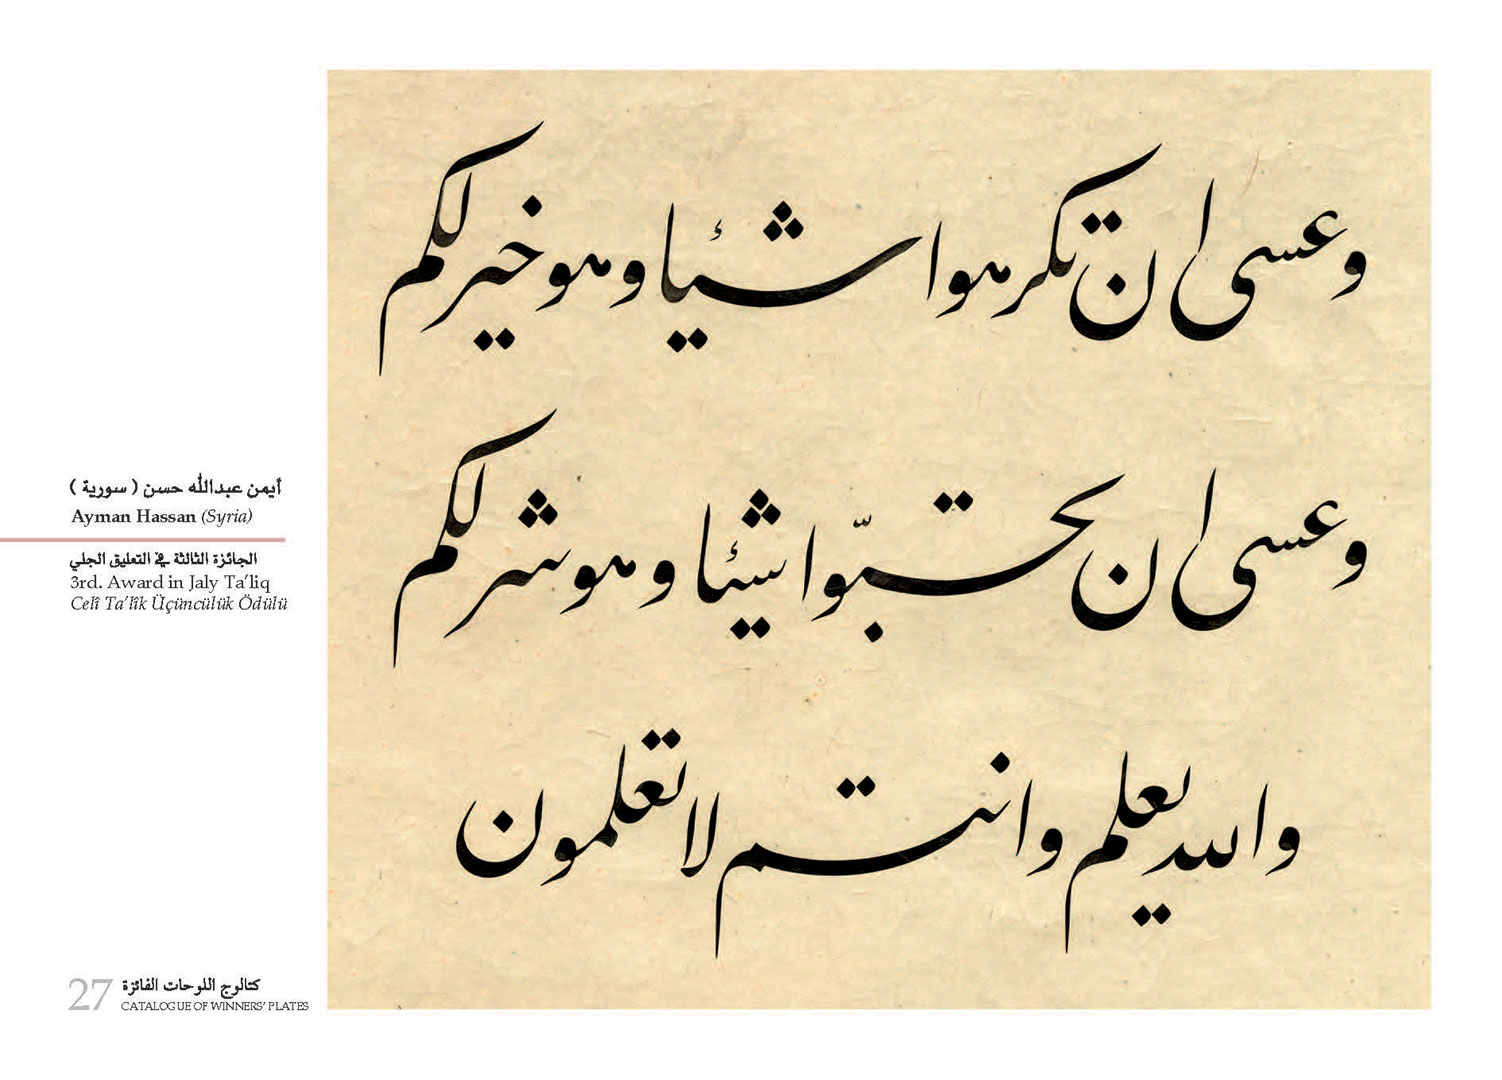 وعسى ان تكرهوا شيئا وهو خير لكم
وعسى ان تحبّوا شيئا وهو شر لكم
والله يعلم وانتم لا تعلمون
أيمن عبدالله حسن ( سورية )
Ayman Hassan (Syria)
الجائزة الثالثة في التعليق الجلي
3rd. Award in Jaly Ta’liq
Celî Ta’lîk Üçüncülük Ödülü
27 كتالوج اللوحات الفائزة
CATALOGUE OF WINNERS’ PLATES